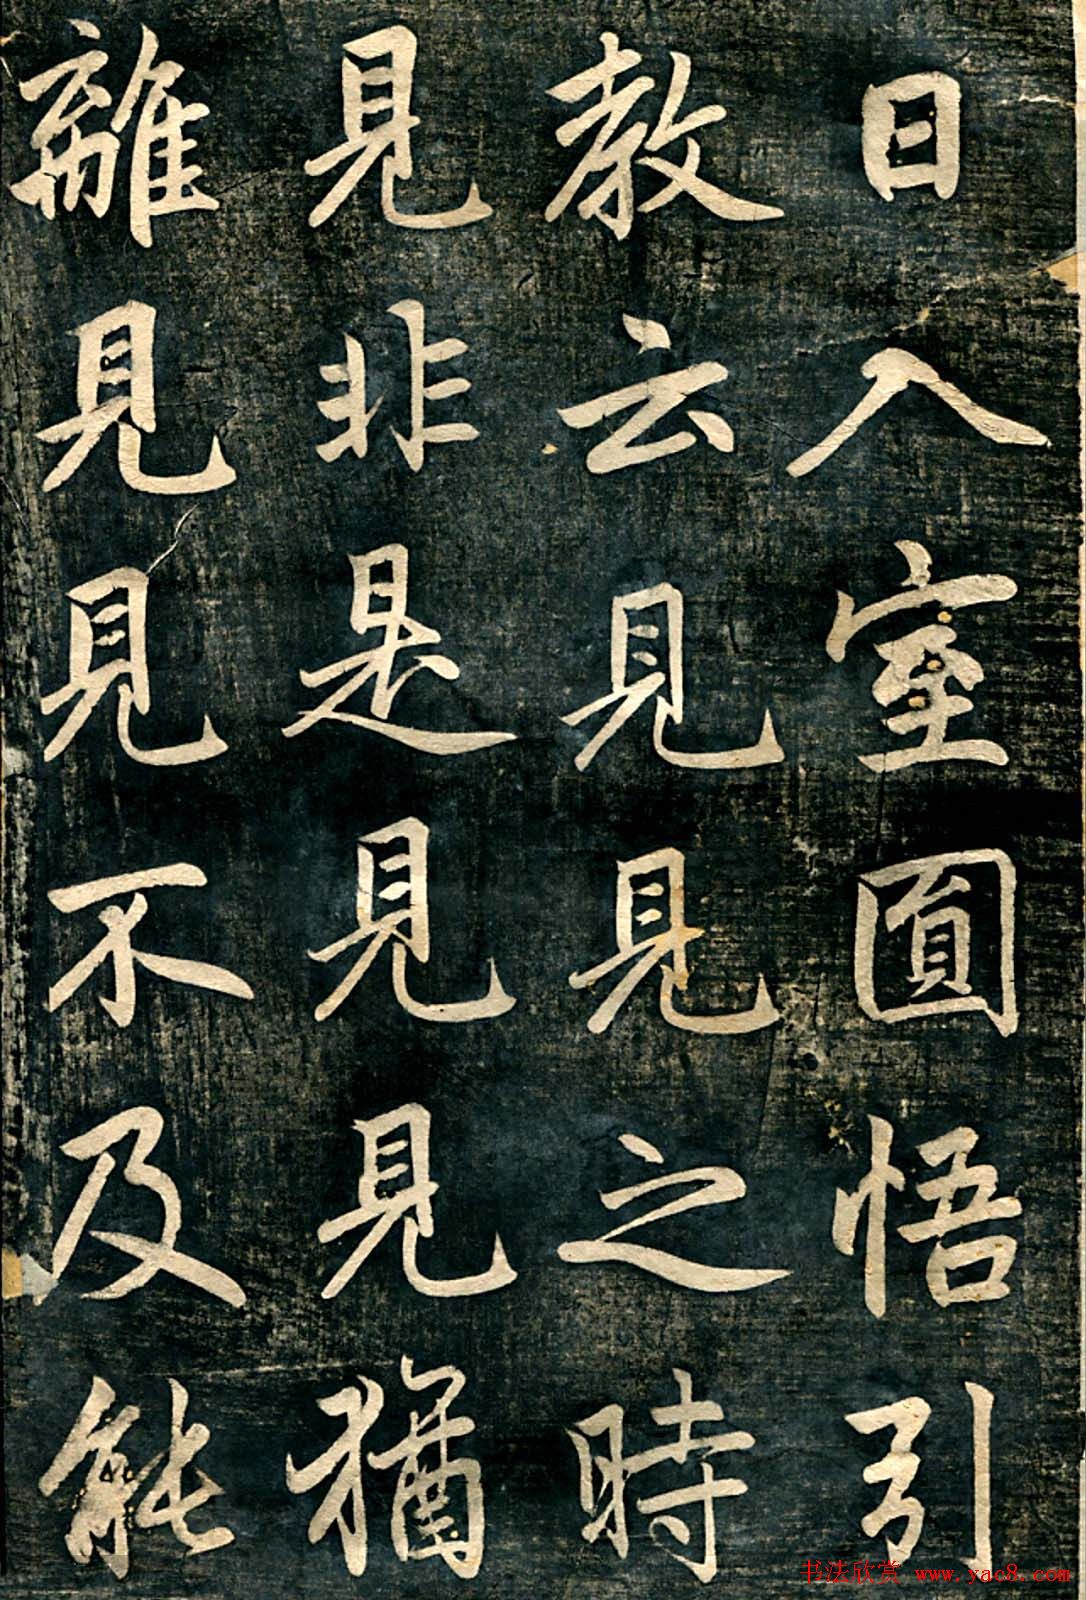 日入室圓悟引
教云見見之時
見非是見見猶
離見見不及能
书法欣赏 www.yac8.com